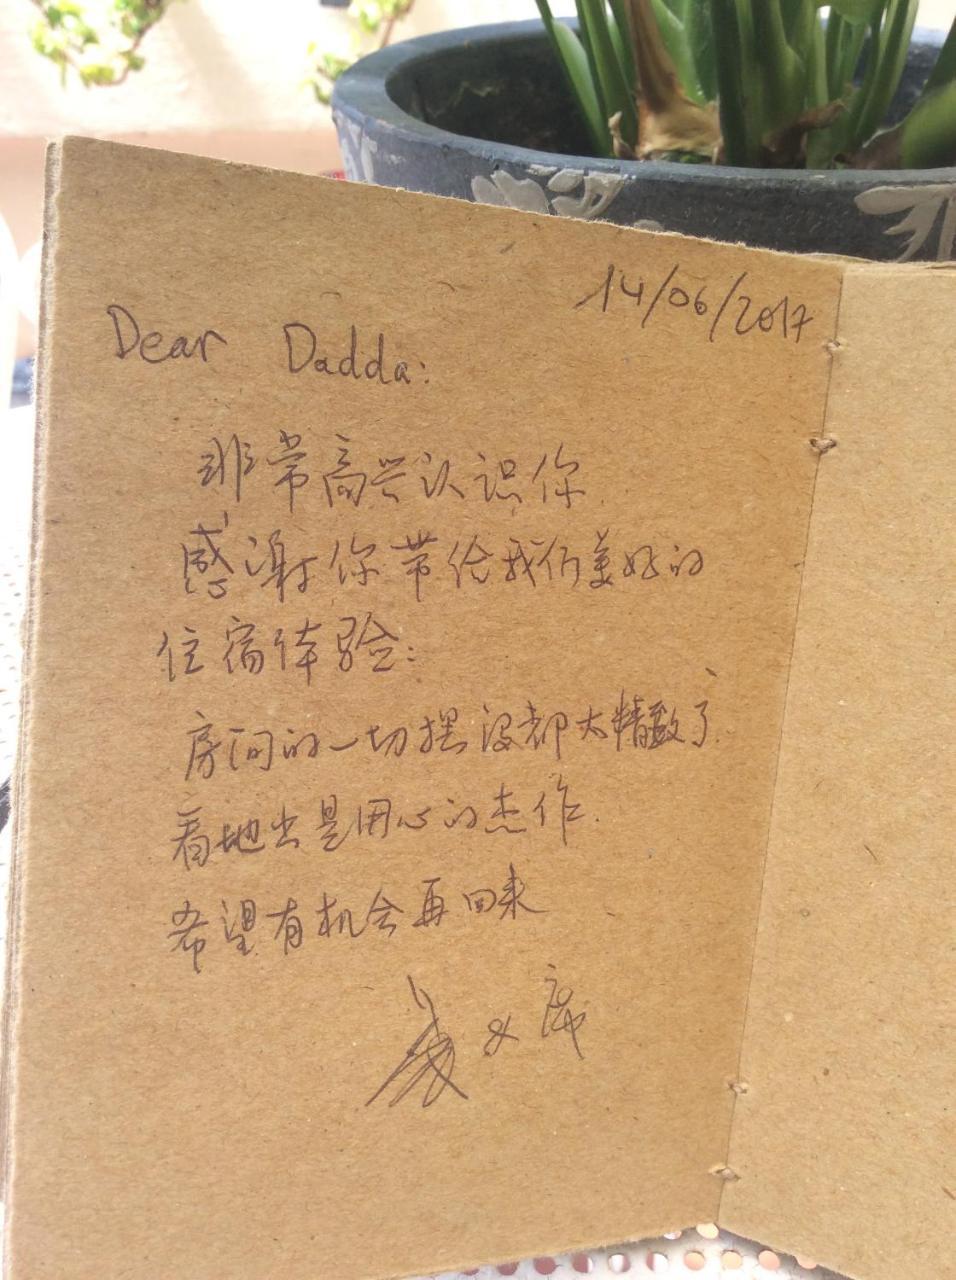 14/06/2017
Dear Dadda:
非常高兴认识你
感谢你带给我们美好的
住宿体验:
房间的一切摆设都太精致了.
看地出是用心的杰作.
希望有机会再回来
&